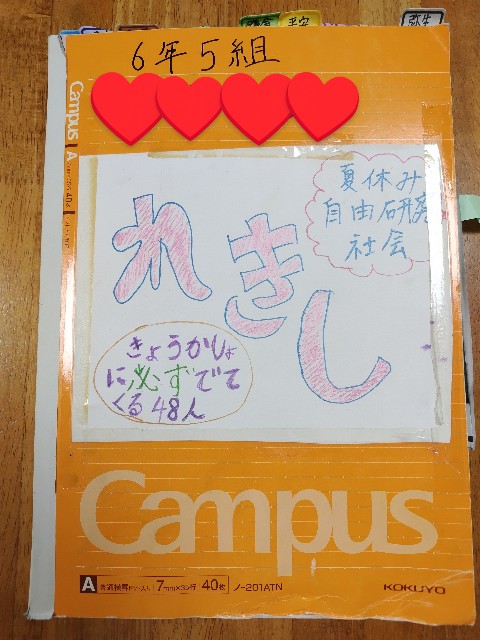 平安
弥生
6年5組
Campus
夏休み
自由研究
社会
れきし
きょうかしょ
に必ずでて
くる48人
Campus
A 7mm×35行 40枚 ノ-201ATN
KOKUYO